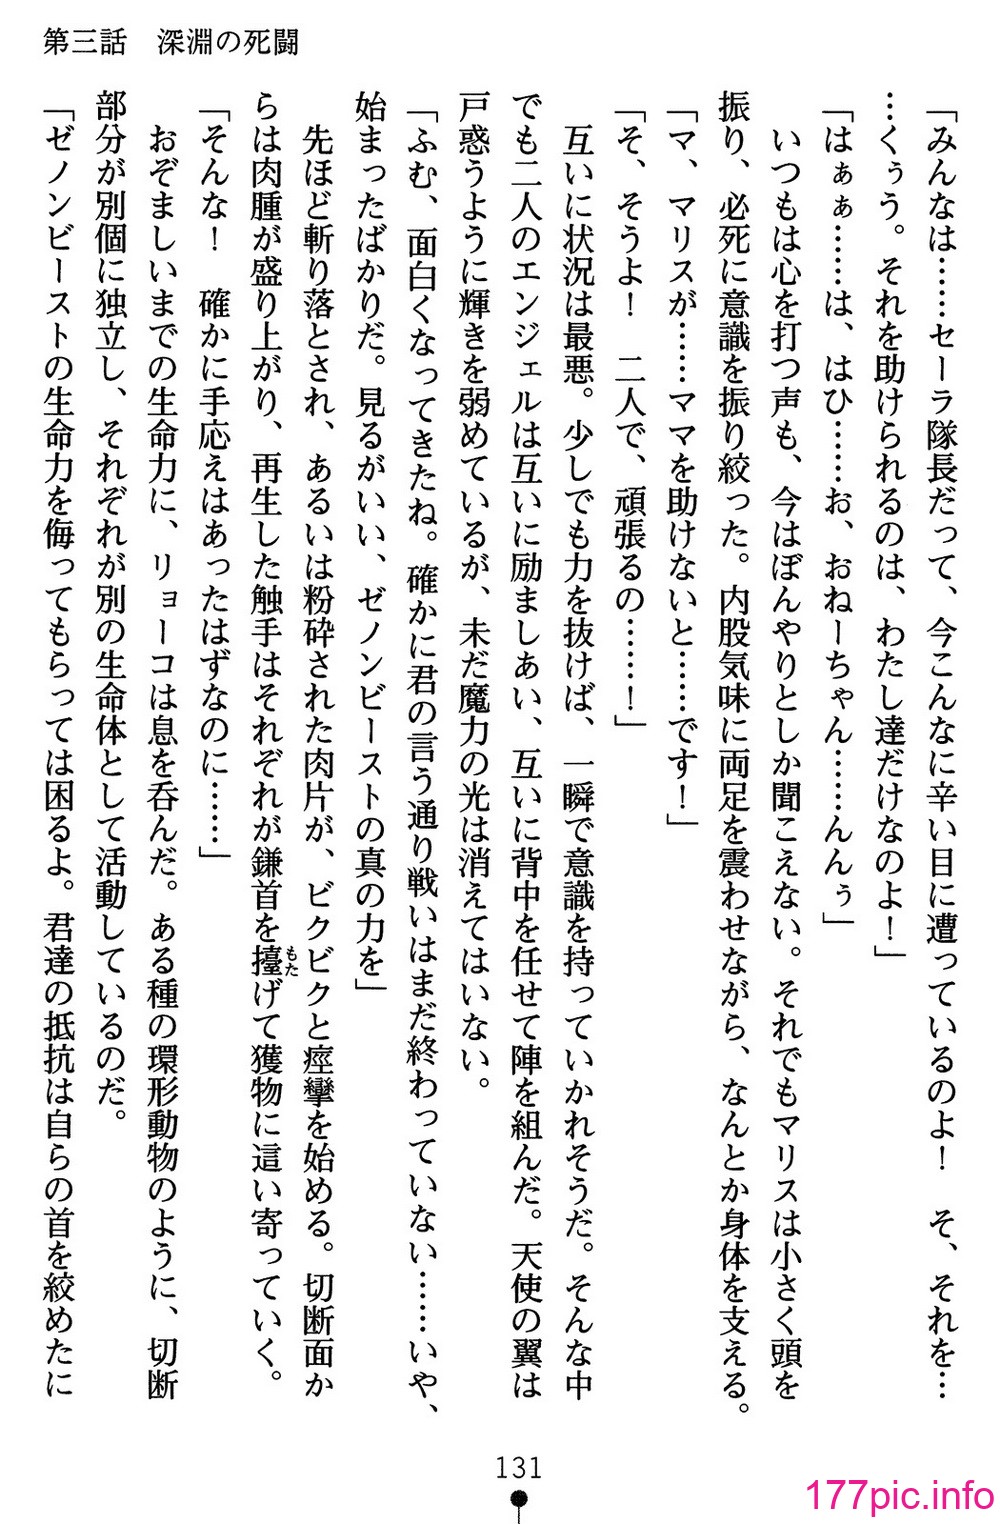 第三話　深淵の死闘
「みんなは……セーラ隊長だって、今こんなに辛い目に遭っているのよ！　そ、それを…
…くぅう。それを助けられるのは、わたし達だけなのよ！」
「はぁぁ……は、はひ……お、おねーちゃん……んんぅ」
　いつもは心を打つ声も、今はぼんやりとしか聞こえない。それでもマリスは小さく頭を
振り、必死に意識を振り絞った。内股気味に両足を震わせながら、なんとか身体を支える。
「マ、マリスが……ママを助けないと……です！」
「そ、そうよ！　二人で、頑張るの……！」
　互いに状況は最悪。少しでも力を抜けば、一瞬で意識を持っていかれそうだ。そんな中
でも二人のエンジェルは互いに励ましあい、互いに背中を任せて陣を組んだ。天使の翼は
戸惑うように輝きを弱めているが、未だ魔力の光は消えてはいない。
「ふむ、面白くなってきたね。確かに君の言う通り戦いはまだ終わっていない……いや、
始まったばかりだ。見るがいい、ゼノンビーストの真の力を」
　先ほど斬り落とされ、あるいは粉砕された肉片が、ビクビクと痙攣を始める。切断面か
らは肉腫が盛り上がり、再生した触手はそれぞれが鎌首を擡もたげて獲物に這い寄っていく。
「そんな！　確かに手応えはあったはずなのに……」
　おぞましいまでの生命力に、リョーコは息を呑んだ。ある種の環形動物のように、切断
部分が別個に独立し、それぞれが別の生命体として活動しているのだ。
「ゼノンビーストの生命力を侮ってもらっては困るよ。君達の抵抗は自らの首を絞めたに
131
177pic.info